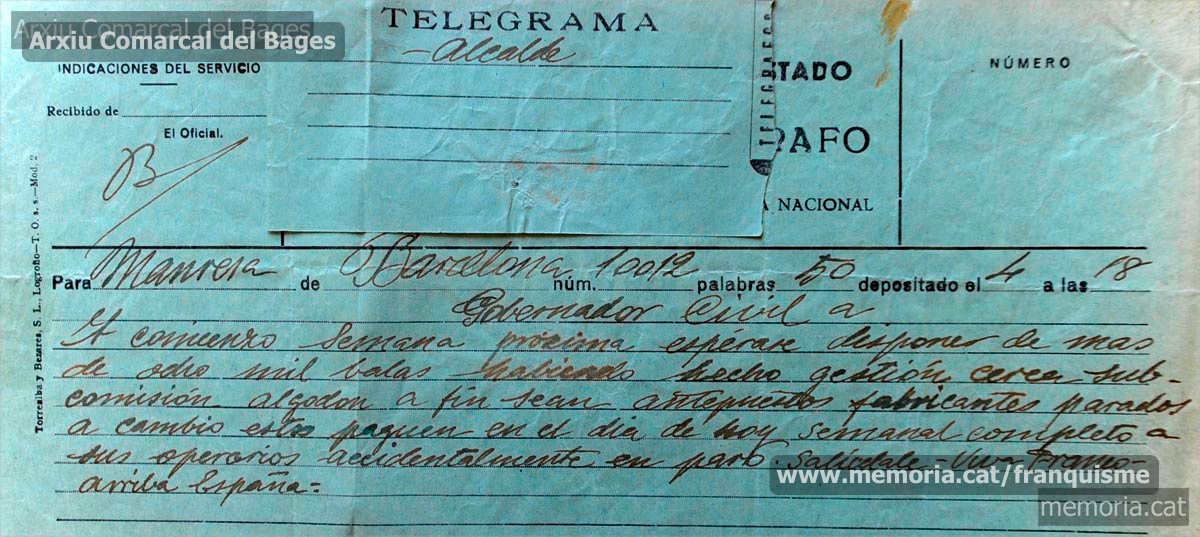 Arxiu Comarcal del Bages
Arxiu Comarcal del Bages
TELEGRAMA
-Alcalde
INDICACIONES DEL SERVICIO
Recibido de
El Oficial.
B
TELEGRAFOS
STADO
RAFO
A NACIONAL
NÚMERO
Torrealba y Bezares, S. L., Logroño—T. O. s. s.—Mod. 2
Para Manresa de Barcelona núm. 10012 palabras 50 depositado el 4 a las 18
Gobernador Civil a
A comienzo semana próxima espérase disponer de mas
de ocho mil balas habiendo hecho gestión cerca sub-
comisión algodon a fin sean antepuestos fabricantes parados
a cambio estos paguen en el dia de hoy semanal completo a
sus operarios accidentalmente en paro Salúdale - Viva Franco-
arriba España=
www.memoria.cat/franquisme
memoria.cat